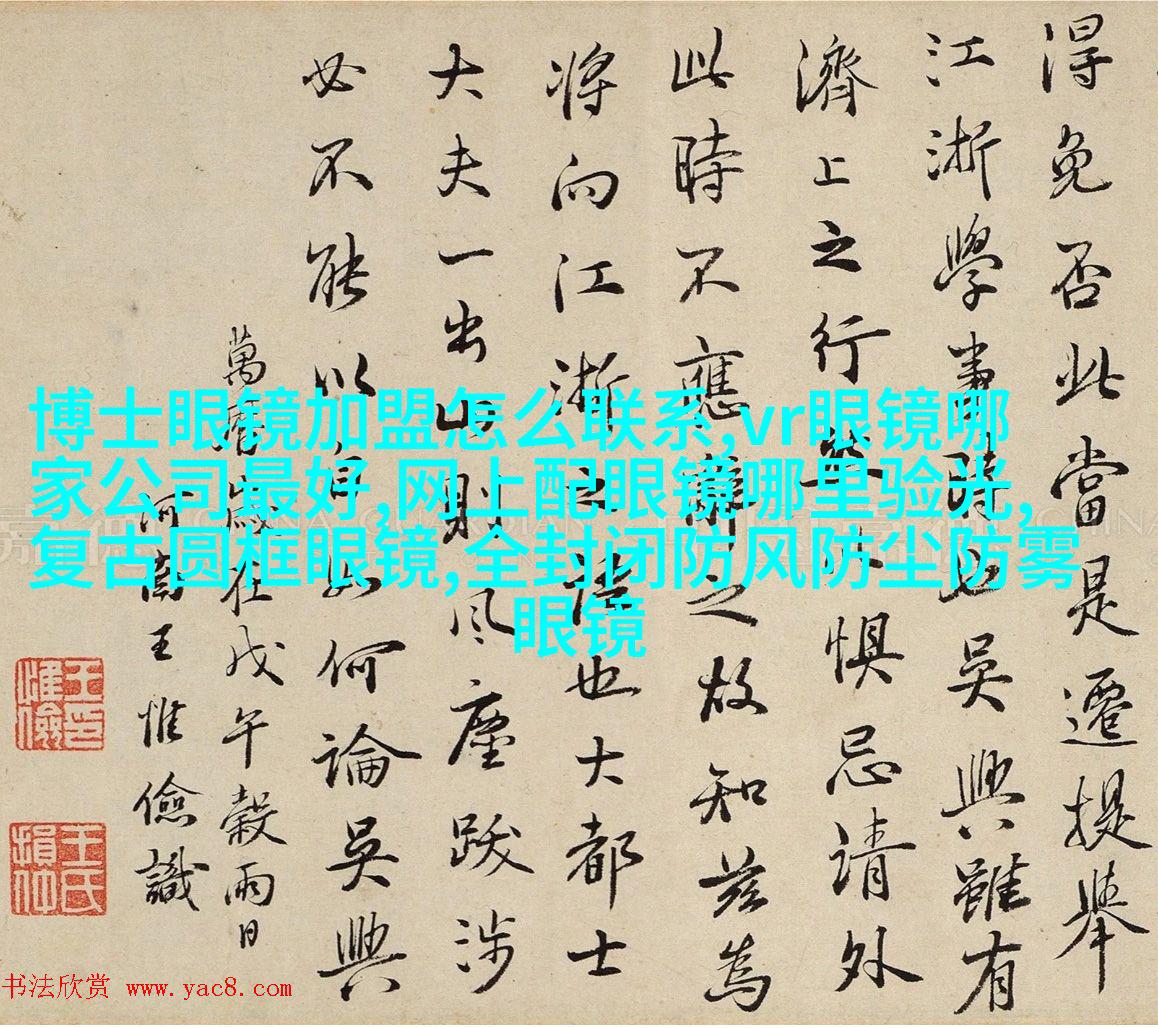 得免否此當是遷提舉
江浙學事時也吳興雖有
濟上之行外惧忌请外
此時不應辭之故知兹為
将向江浙之語也大都士
大夫一出山則風塵跋涉
必不能以自如何論吳興
萬曆歲在戊午穀雨日
河南王惟儉識
博士眼镜加盟怎么联系,vr眼镜哪
家公司最好,网上配眼镜哪里验光,
复古圆框眼镜,全封闭防风防尘防雾
眼镜
书法欣赏 www.yac8.com